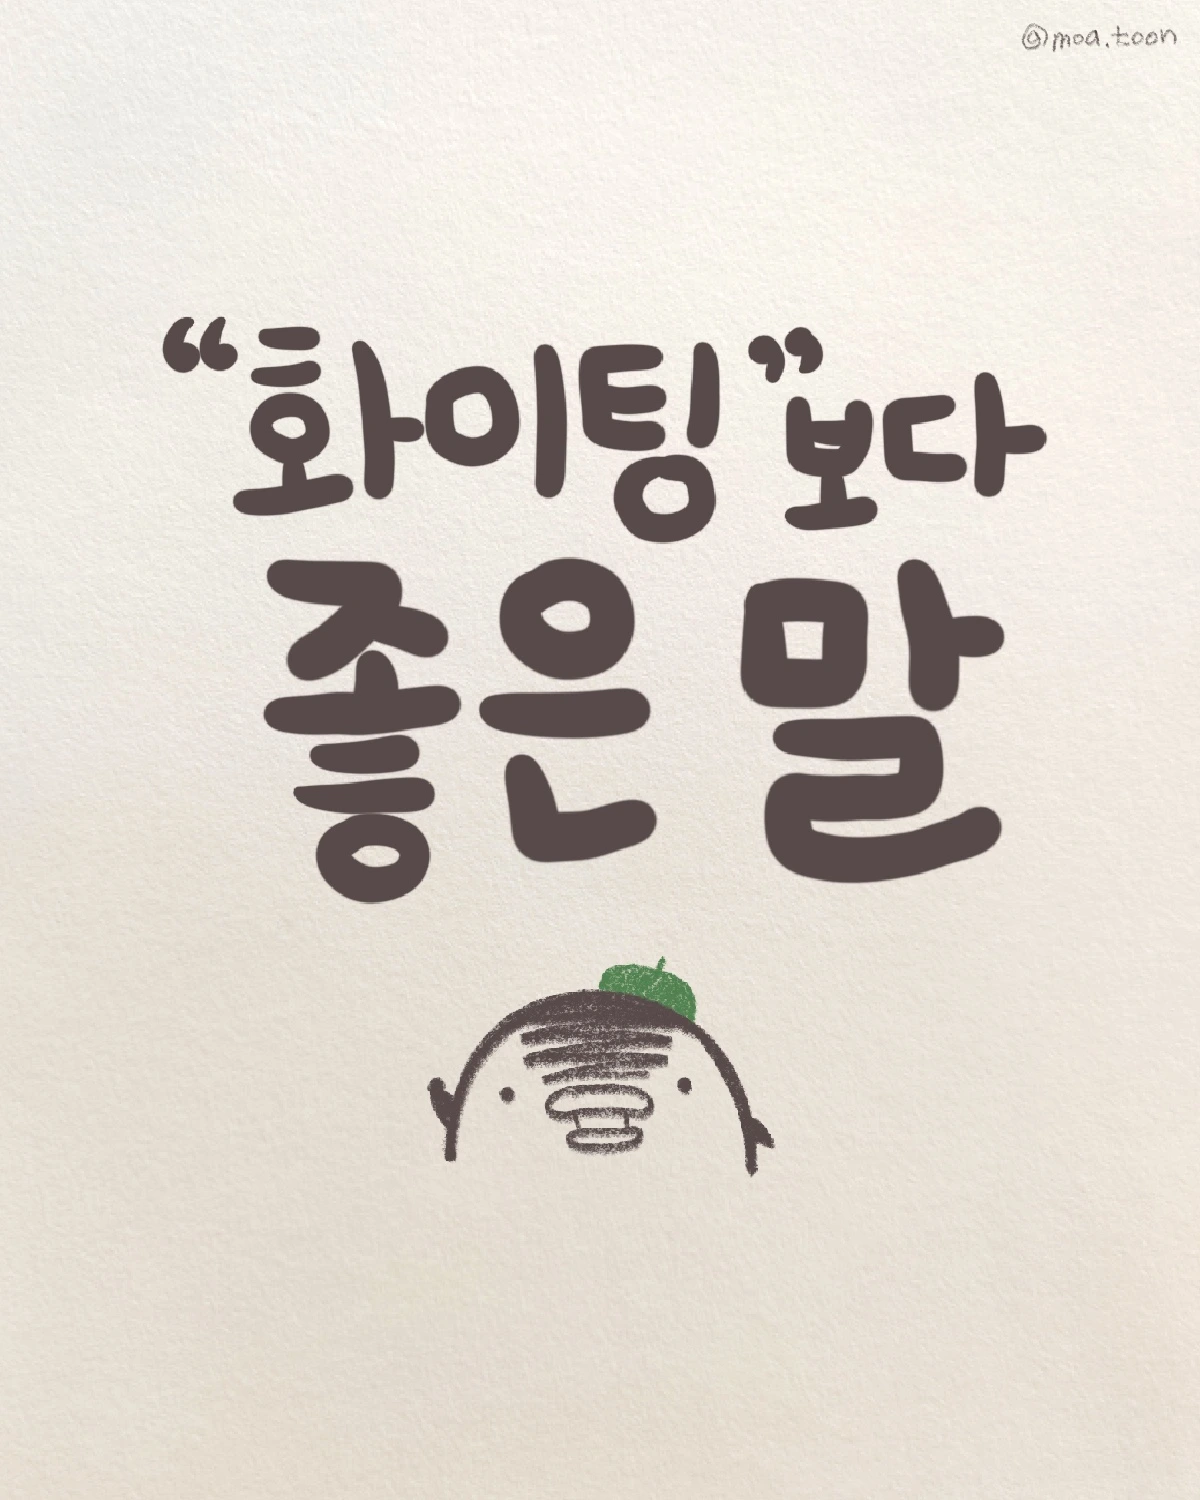 @moa.toon
“화이팅”보다
좋은 말